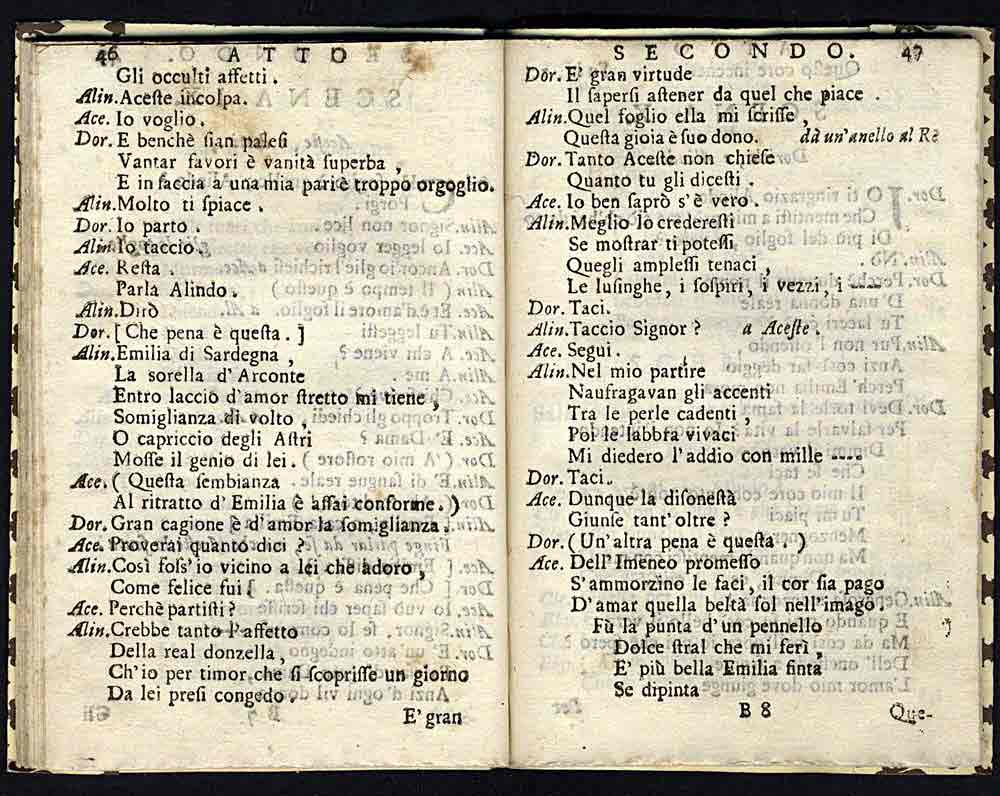 46 ATTO
Gli occulti affetti.
Alin. Aceſte incolpa.
Ace. Io voglio.
Dor. E benchè ſian paleſi
Vantar favori è vanità ſuperba,
E in faccia a una mia pari è troppo orgoglio.
Alin. Molto ti ſpiace.
Dor. Io parto.
Alin. Io taccio.
Ace. Reſta.
Parla Alindo.
Alin. Dirò
Dor. [Che pena è queſta.]
Alin. Emilia di Sardegna,
La sorella d'Arconte
Entro laccio d'amor ſtretto mi tiene,
Somiglianza di volto,
O capriccio degli Aſtri
Moſſe il genio di lei.
Ace. (Queſta ſembianza
Al ritratto d'Emilia è aſſai conforme.)
Dor. Gran cagione è d'amor la ſomiglianza.
Ace. Proverai quanto dici?
Alin. Così foſs'io vicino a lei che adoro,
Come felice fui!
Ace. Perchè partiſti?
Alin. Crebbe tanto l'affetto
Della real donzella,
Ch'io per timor che ſi ſcopriſſe un giorno
Da lei preſi congedo.
E' gran
SECONDO. 47
Dor. E' gran virtude
Il ſaperſi aſtener da quel che piace.
Alin. Quel foglio ella mi ſcriſſe,
Queſta gioia è ſuo dono. dà un'anello al Rè
Dor. Tanto Aceſte non chieſe
Quanto tu gli diceſti.
Ace. Io ben ſaprò s'è vero.
Alin. Meglio lo crederesti
Se moſtrar ti poteſſi
Quegli ampleſſi tenaci,
Le luſinghe, i ſoſpiri, i vezzi, i ----
Dor. Taci.
Alin. Taccio Signor? a Aceſte.
Ace. Segui.
Alin. Nel mio partire
Naufragavan gli accenti
Tra le perle cadenti,
Poi le labbra vivaci
Mi diedero l'addio con mille ----
Dor. Taci.
Ace. Dunque la diſoneſtà
Giunſe tant'oltre?
Dor. (Un'altra pena è queſta)
Ace. Dell'Imeneo promeſſo
S'ammorzino le faci, il cor ſia pago
D'amar quella beltà ſol nell'imago.
Fù la punta d'un pennello
Dolce ſtral che mi ferì,
E' più bella Emilia finta
Se dipinta
B 8 Que-